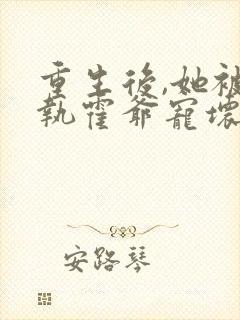 重生後,她被
執霍爺寵壞
安路琴